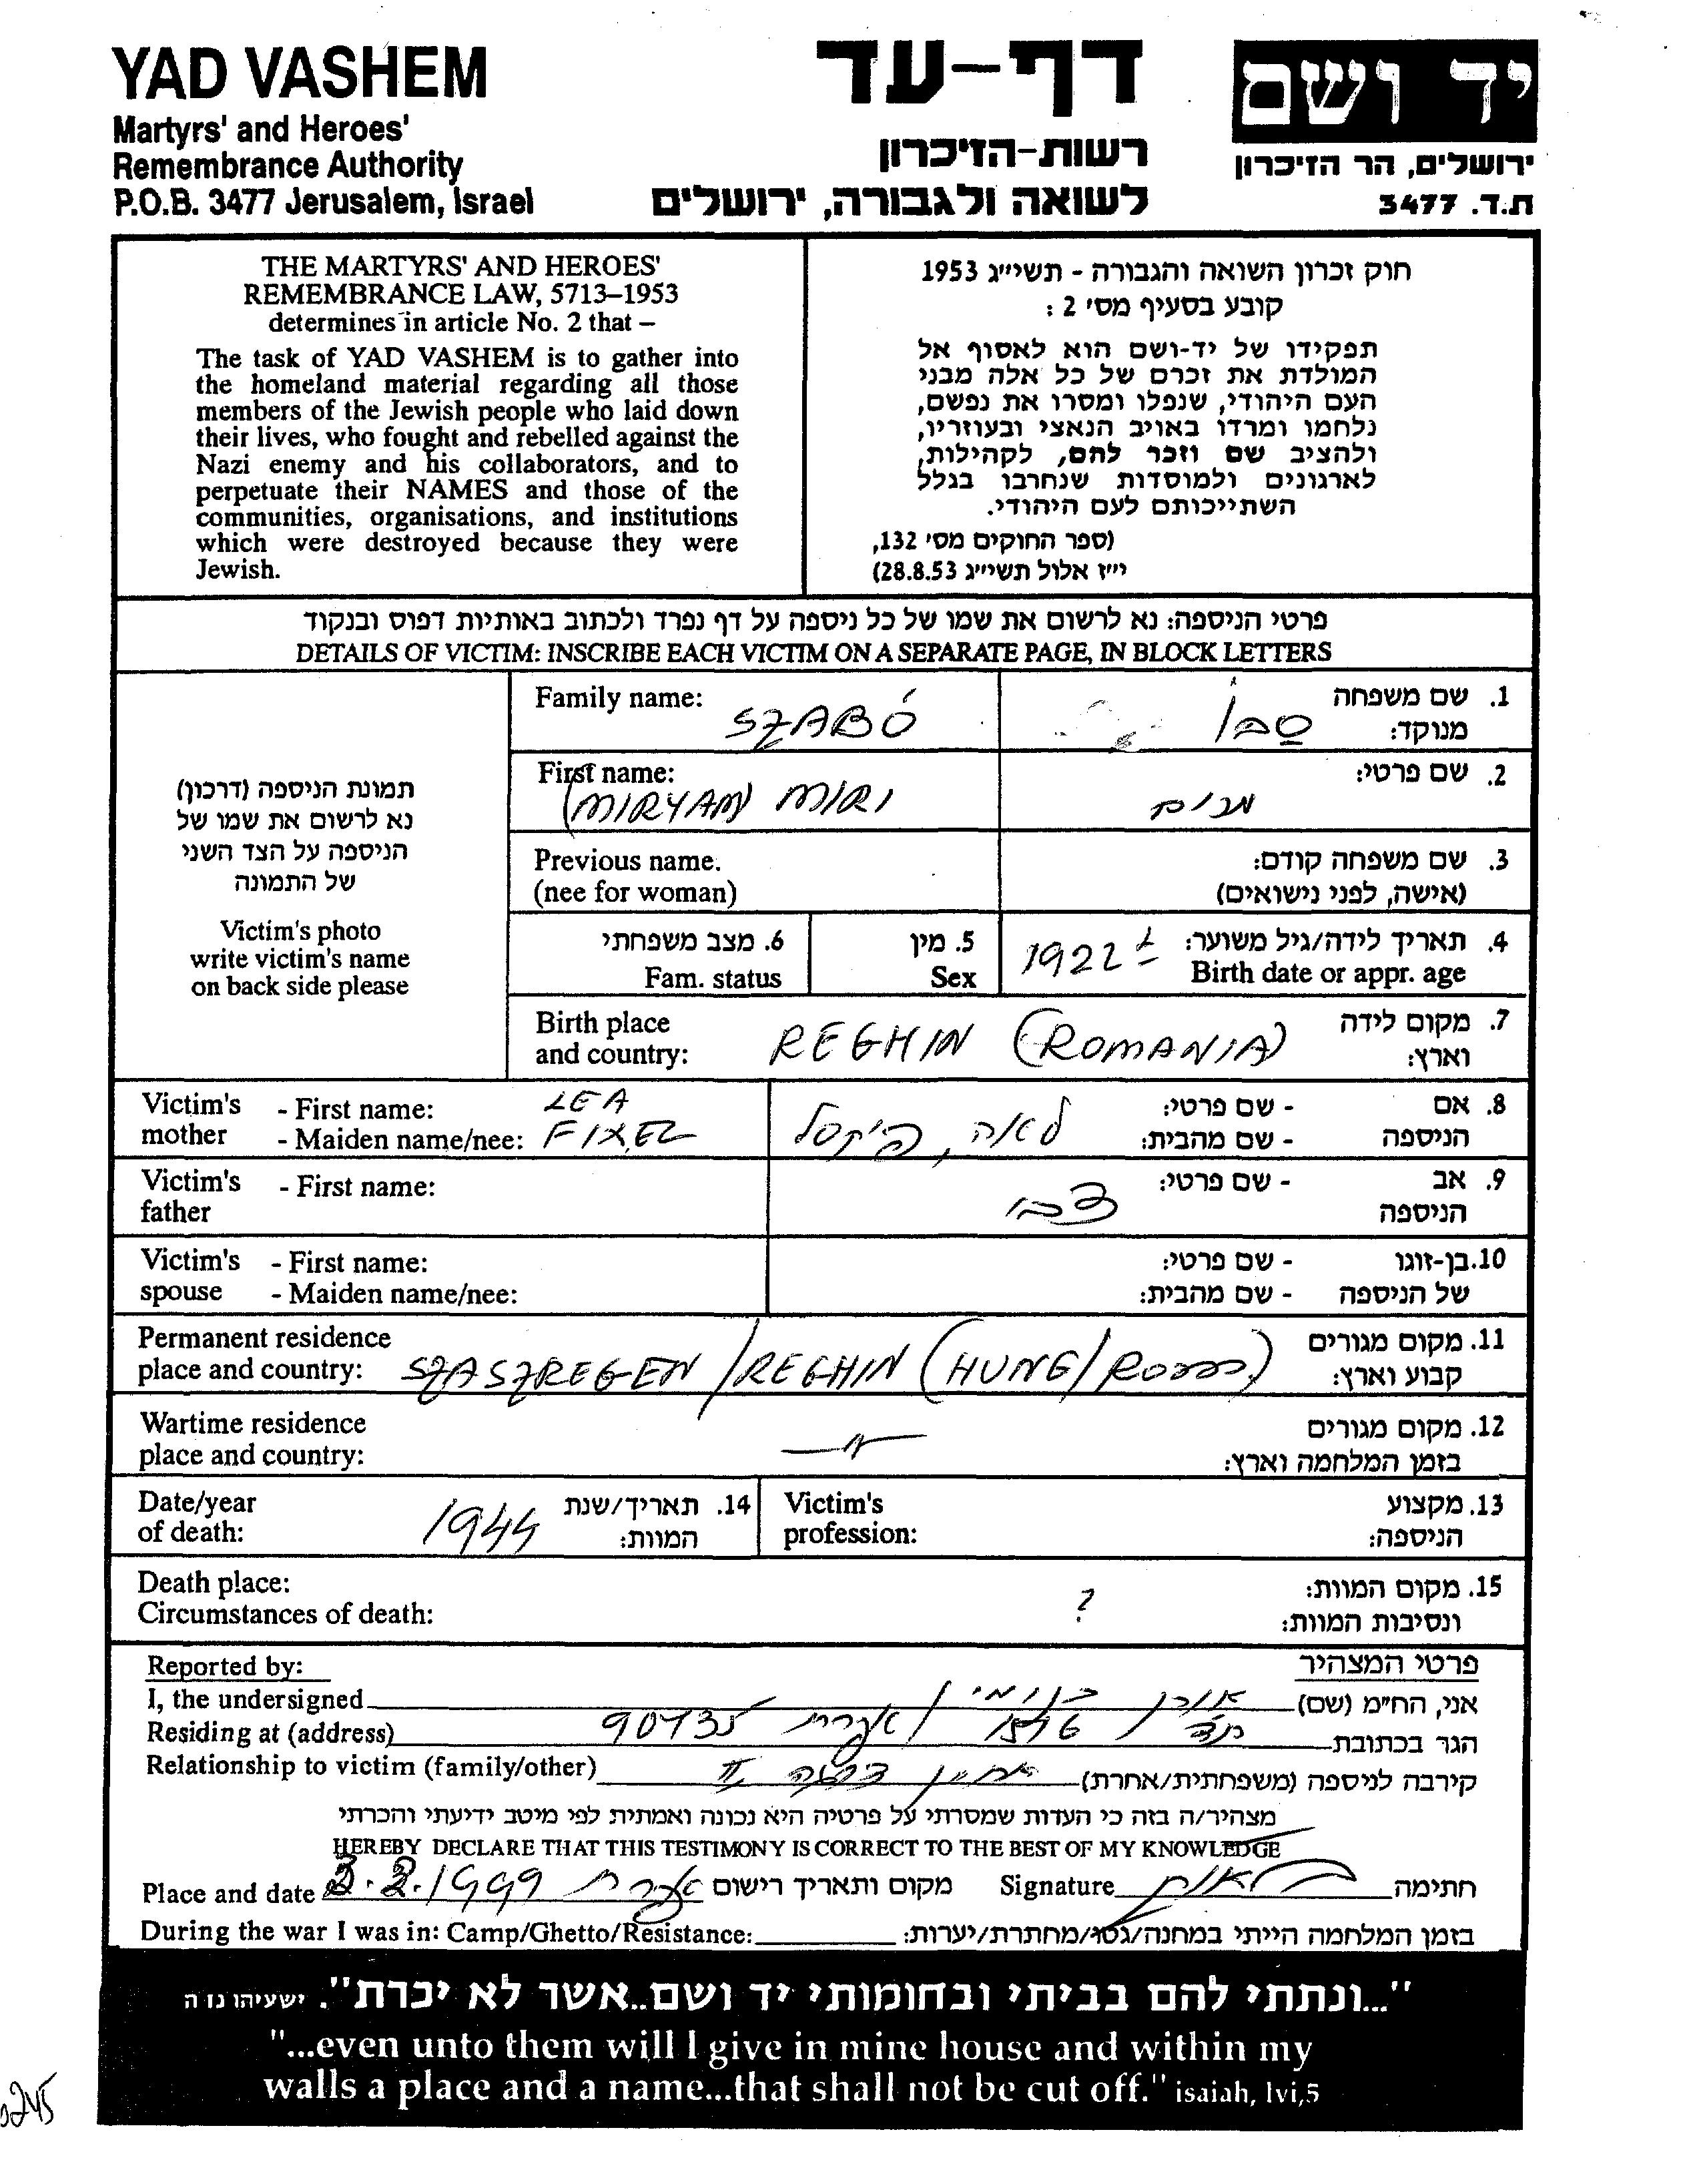 YAD VASHEM
Martyrs' and Heroes'
Remembrance Authority
P.O.B. 3477 Jerusalem, Israel
דף-עד
רשות-הזיכרון
לשואה ולגבורה, ירושלים
יד ושם
ירושלים, הר הזיכרון
ת.ד. 3477
THE MARTYRS' AND HEROES'
REMEMBRANCE LAW, 5713–1953
determines in article No. 2 that –
The task of YAD VASHEM is to gather into
the homeland material regarding all those
members of the Jewish people who laid down
their lives, who fought and rebelled against the
Nazi enemy and his collaborators, and to
perpetuate their NAMES and those of the
communities, organisations, and institutions
which were destroyed because they were
Jewish.
חוק זכרון השואה והגבורה - תשי״ג 1953
קובע בסעיף מס' 2 :
תפקידו של יד-ושם הוא לאסוף אל
המולדת את זכרם של כל אלה מבני
העם היהודי, שנפלו ומסרו את נפשם,
נלחמו ומרדו באויב הנאצי ובעוזריו,
ולהציב שם וזכר להם, לקהילות,
לארגונים ולמוסדות שנחרבו בגלל
השתייכותם לעם היהודי.
(ספר החוקים מס' 132,
י״ז אלול תשי״ג 28.8.53)
פרטי הניספה: נא לרשום את שמו של כל ניספה על דף נפרד ולכתוב באותיות דפוס ובנקוד
DETAILS OF VICTIM: INSCRIBE EACH VICTIM ON A SEPARATE PAGE, IN BLOCK LETTERS
תמונת הניספה (דרכון)
נא לרשום את שמו של
הניספה על הצד השני
של התמונה
Victim's photo
write victim's name
on back side please
Family name: SZABÓ
1. שם משפחה
מנוקד: סבו
First name:
(MIRYAM) MIRI
2. שם פרטי:
מרים
Previous name.
(nee for woman)
3. שם משפחה קודם:
(אישה, לפני נישואים)
6. מצב משפחתי
Fam. status
5. מין
Sex
4. תאריך לידה/גיל משוער:
Birth date or appr. age
1922 ±
Birth place
and country: REGHIN (ROMANIA)
7. מקום לידה
וארץ:
Victim's - First name: LEA
mother - Maiden name/nee: FIXEL
8. אם - שם פרטי:
הניספה - שם מהבית: לאה, פיקסל
Victim's - First name:
father
9. אב - שם פרטי:
הניספה
Victim's - First name:
spouse - Maiden name/nee:
10. בן-זוגו - שם פרטי:
של הניספה - שם מהבית:
Permanent residence
place and country: SZASZREGEN / REGHIN (HUNG/
11. מקום מגורים
קבוע וארץ:
Wartime residence
place and country:
12. מקום מגורים
בזמן המלחמה וארץ:
Date/year
of death: 1944
14. תאריך/שנת
המוות:
Victim's
profession:
13. מקצוע
הניספה:
Death place:
Circumstances of death: ?
15. מקום המוות:
ונסיבות המוות:
Reported by:
פרטי המצהיר
I, the undersigned
אני, הח״מ (שם)
Residing at (address) 90435 אפרת / 1576
הגר בכתובת
Relationship to victim (family/other) II
קירבה לניספה (משפחתית/אחרת)
מצהיר/ה בזה כי העדות שמסרתי על פרטיה היא נכונה ואמתית לפי מיטב ידיעתי והכרתי
HEREBY DECLARE THAT THIS TESTIMONY IS CORRECT TO THE BEST OF MY KNOWLEDGE
Place and date 3.2.1999 אפרת מקום ותאריך רישום Signature חתימה
During the war I was in: Camp/Ghetto/Resistance: בזמן המלחמה הייתי במחנה/גטו/מחתרת/יערות:
"...ונתתי להם בביתי ובחומותי יד ושם..אשר לא יכרת". ישעיהו נו ה
"...even unto them will I give in mine house and within my
walls a place and a name...that shall not be cut off." isaiah, lvi,5